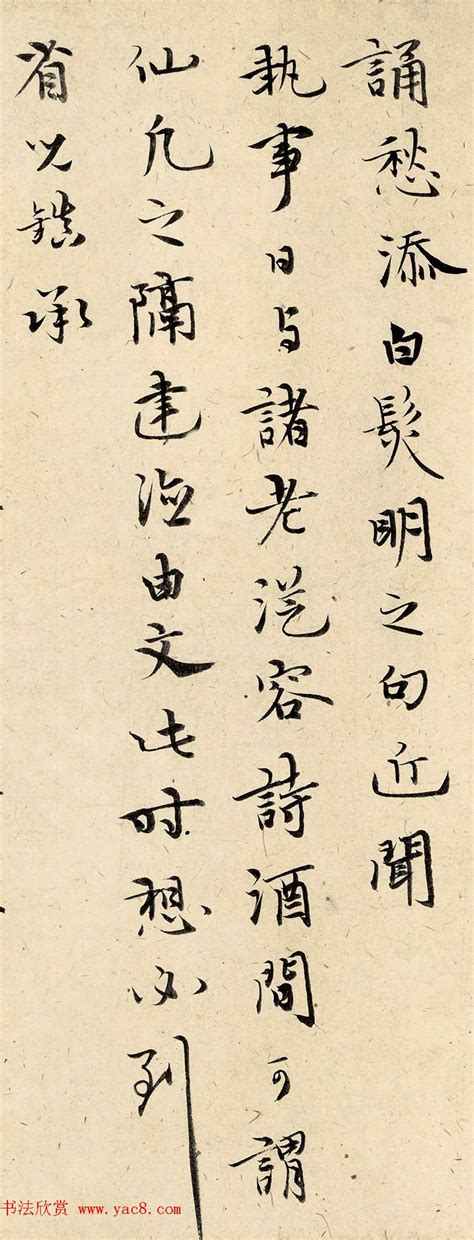 誦愁添白髮明之句近聞
執事日与諸老從容詩酒間可謂
仙凡之隔建由文此时想必到
省鎮承
书法欣赏 www.yac8.com